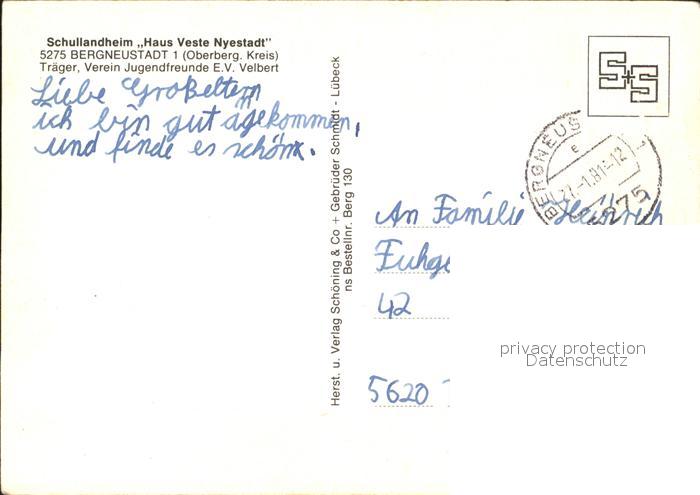 Schullandheim „Haus Veste Nyestadt"
5275 BERGNEUSTADT 1 (Oberberg. Kreis)
Träger, Verein Jugendfreunde E.V. Velbert
Liebe Großeltern
ich bin gut agekommen,
und finde es schön.
Herst. u. Verlag Schöning & Co + Gebrüder Schmidt - Lübeck
ns Bestellnr. Berg 130
S+S
BERGNEUS
27.-1.81-12
5275
An Familie Heinrich
42
5620
privacy protection
Datenschutz